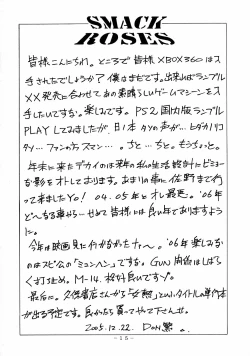 SMACK
ROSES
皆様こんにちわ。ところで皆様XBOX360はス
手されたでしょうか？僕はまだです。出来ればランブル
XX発売に合わせてあの素晴らしいゲームマシーンを入
手したいですな。楽しみです。PS2国内版ランブル
PLAYしてみましたが、日本タメの声が…ヒダカノリコ
タイ…ファンの方スマン…。ちと…ちと。そうちょっと。
年末に来たデカイのは来年の私の生活設計にビミョー
な影をオトしております。あまりの事に佐野まで行
って来ましたヨ！04、05年とオレ最悪。'06年
ど～なる事やら…せめて皆様には良い年でありますよう
に。
今年は映画見に行かなかったナ～。'06年楽しみな
のはスピ公の「ミュンヘン」ですな。GUN関係はしばら
く打止め。M-14、格好良いです～ノ。
最後に。久保書店さんから「女熱」というタイトルの単行本
が出る予定です。良かったら買ってやって下さいませ。
2005.12.22. DON繁。
-15-